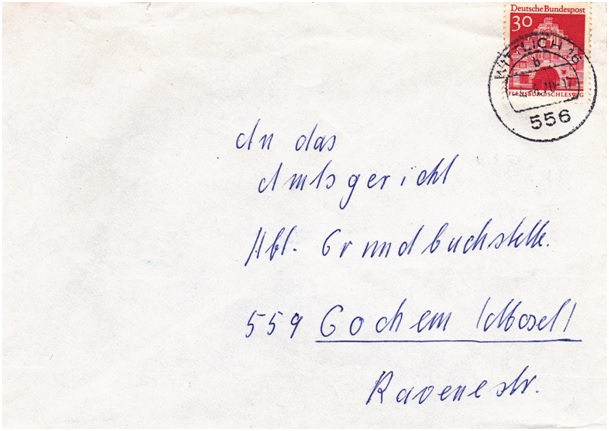 Deutsche Bundespost
30
FLENSBURG/SCHLESWIG
WITTLICH 16
b
556
An das
Amtsgericht
Abt. Grundbuchstelle.
559 Cochem (Mosel)
Ravenéstr.